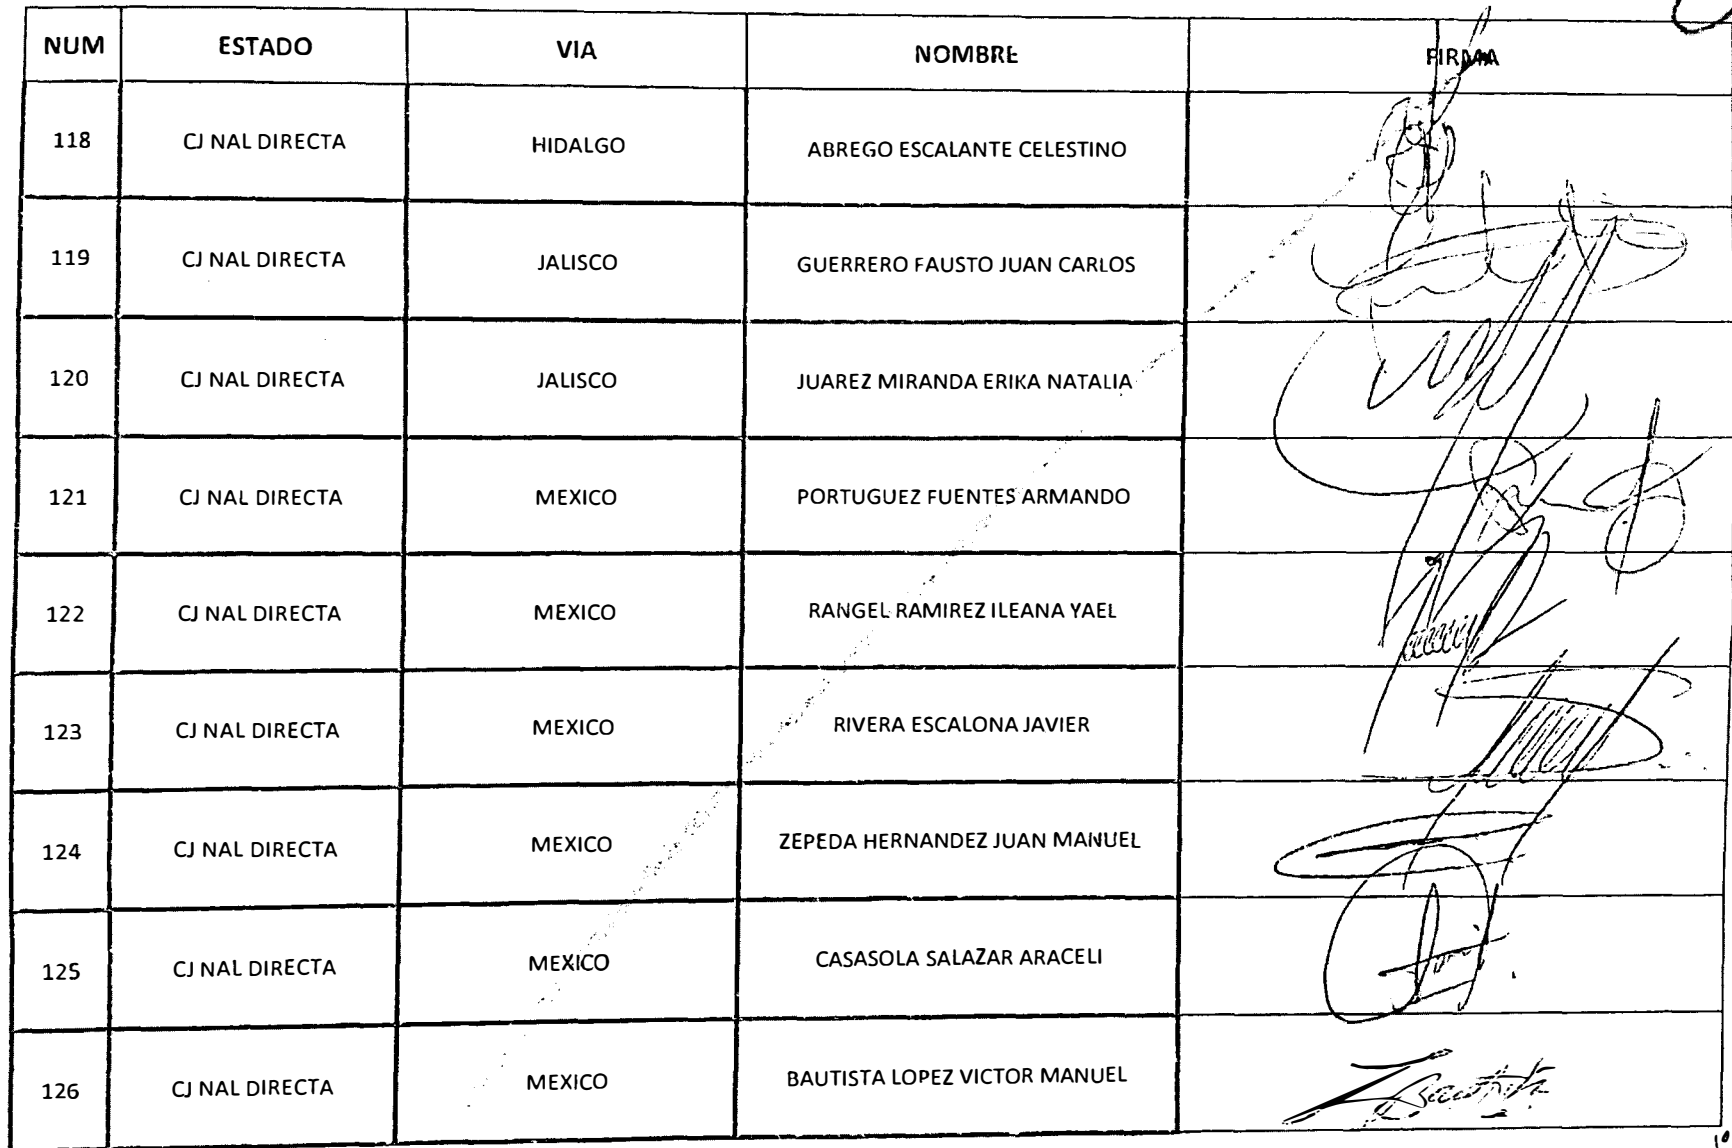 NUM ESTADO VIA NOMBRE FIRMA
118 CJ NAL DIRECTA HIDALGO ABREGO ESCALANTE CELESTINO
119 CJ NAL DIRECTA JALISCO GUERRERO FAUSTO JUAN CARLOS
120 CJ NAL DIRECTA JALISCO JUAREZ MIRANDA ERIKA NATALIA
121 CJ NAL DIRECTA MEXICO PORTUGUEZ FUENTES ARMANDO
122 CJ NAL DIRECTA MEXICO RANGEL RAMIREZ ILEANA YAEL
123 CJ NAL DIRECTA MEXICO RIVERA ESCALONA JAVIER
124 CJ NAL DIRECTA MEXICO ZEPEDA HERNANDEZ JUAN MANUEL
125 CJ NAL DIRECTA MEXICO CASASOLA SALAZAR ARACELI
126 CJ NAL DIRECTA MEXICO BAUTISTA LOPEZ VICTOR MANUEL